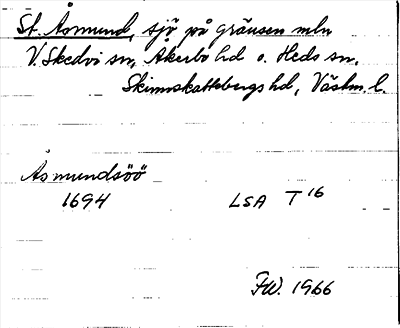 St. Åsmund, sjö på gränsen mln
V. Skedvi sn, Åkerbo hd o. Heds sn,
Skinnskattebergs hd, Västm. l.
Åsmundsöö
1694 LSA T 16
FW. 1966